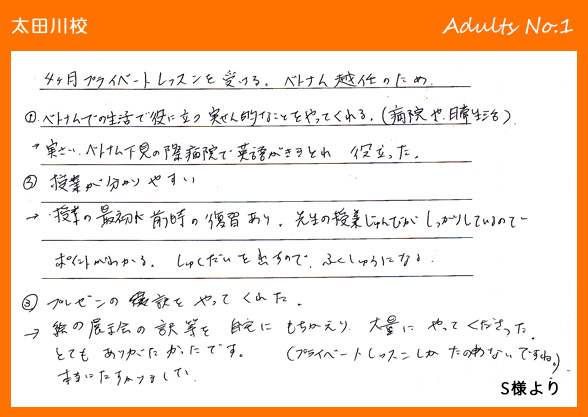 太田川校
Adults No.1
4ヶ月プライベートレッスンを受ける。ベトナム赴任のため.
①ベトナムでの生活で役に立つ実せん的なことをやってくれる。(病院や、日常生活)
→ 実さい、ベトナム下見の際病院で英語がききとれ 役立った。
② 授業が分かりやすい
→ 授業の最初に前時の復習あり。先生の授業じゅんびがしっかりしているので
ポイントがわかる。しゅくだいを出すので、ふくしゅうになる
③ プレゼンの翻訳をやってくれた。
→ 絵の展示会の訳等を自宅にもちかえり 大量にやってくださった.
とてもありがたかったです。(プライベートレッスンしかたのめないですね。)
本当にたすかりました
S様より